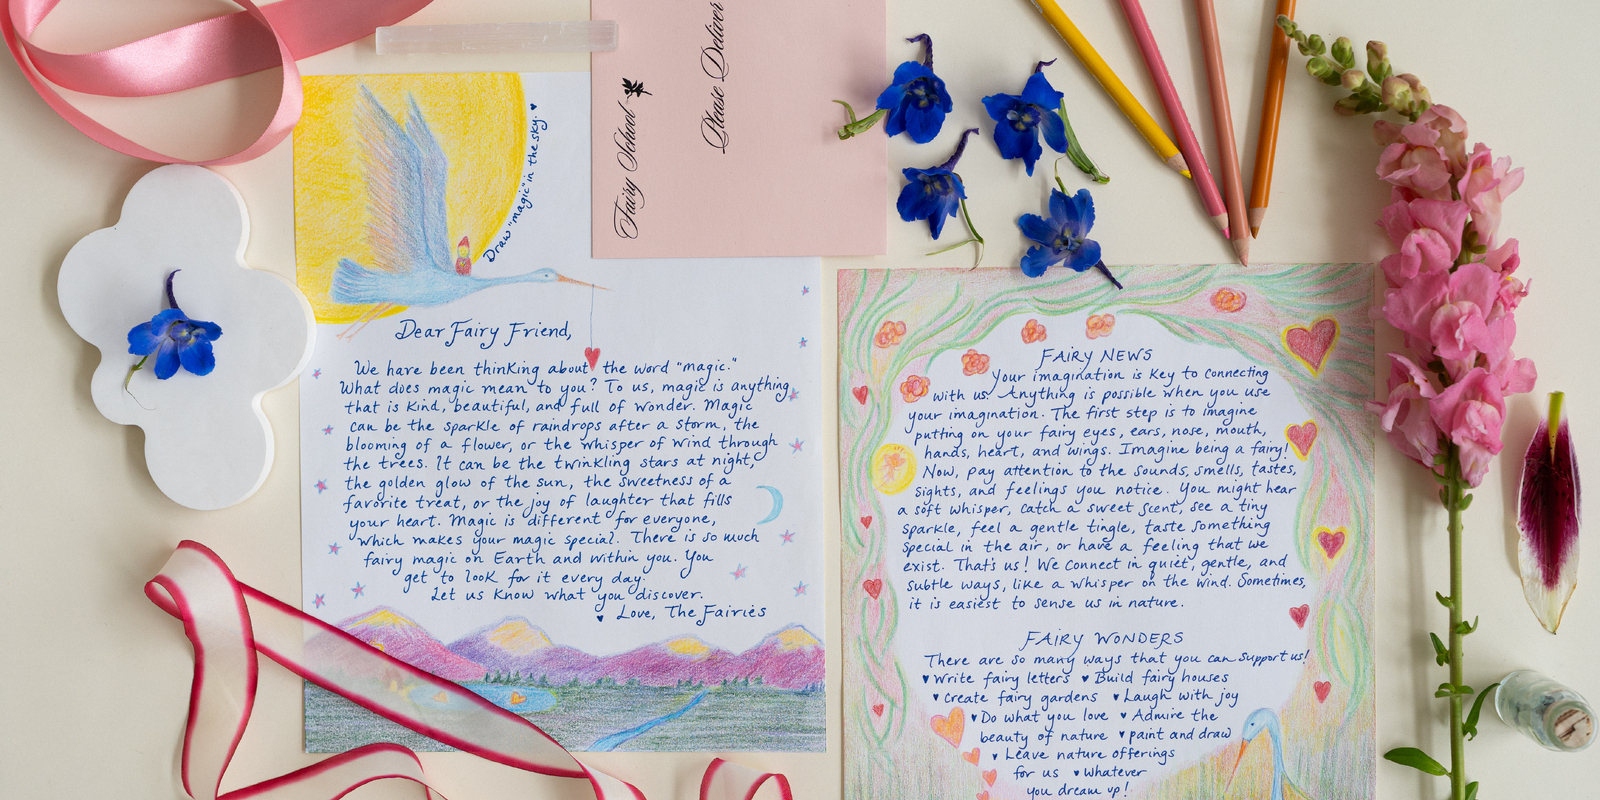 Fairy School
Please Deliver
Draw "magic" in the sky.
Dear Fairy Friend,
We have been thinking about the word "magic."
What does magic mean to you? To us, magic is anything
that is kind, beautiful, and full of wonder. Magic
can be the sparkle of raindrops after a storm, the
blooming of a flower, or the whisper of wind through
the trees. It can be the twinkling stars at night,
the golden glow of the sun, the sweetness of a
favorite treat, or the joy of laughter that fills
your heart. Magic is different for everyone,
which makes your magic special. There is so much
fairy magic on Earth and within you. You
get to look for it every day.
Let us know what you discover.
♥ Love, The Fairies
FAIRY NEWS
Your imagination is key to connecting
with us. Anything is possible when you use
your imagination. The first step is to imagine
putting on your fairy eyes, ears, nose, mouth,
hands, heart, and wings. Imagine being a fairy!
Now, pay attention to the sounds, smells, tastes,
sights, and feelings you notice. You might hear
a soft whisper, catch a sweet scent, see a tiny
sparkle, feel a gentle tingle, taste something
special in the air, or have a feeling that we
exist. That's us! We connect in quiet, gentle, and
subtle ways, like a whisper on the wind. Sometimes,
it is easiest to sense us in nature.
FAIRY WONDERS
There are so many ways that you can support us!
♥ Write fairy letters ♥ Build fairy houses
♥ Create fairy gardens ♥ Laugh with joy
♥ Do what you love ♥ Admire the
beauty of nature ♥ paint and draw
♥ Leave nature offerings
for us ♥ Whatever
you dream up!